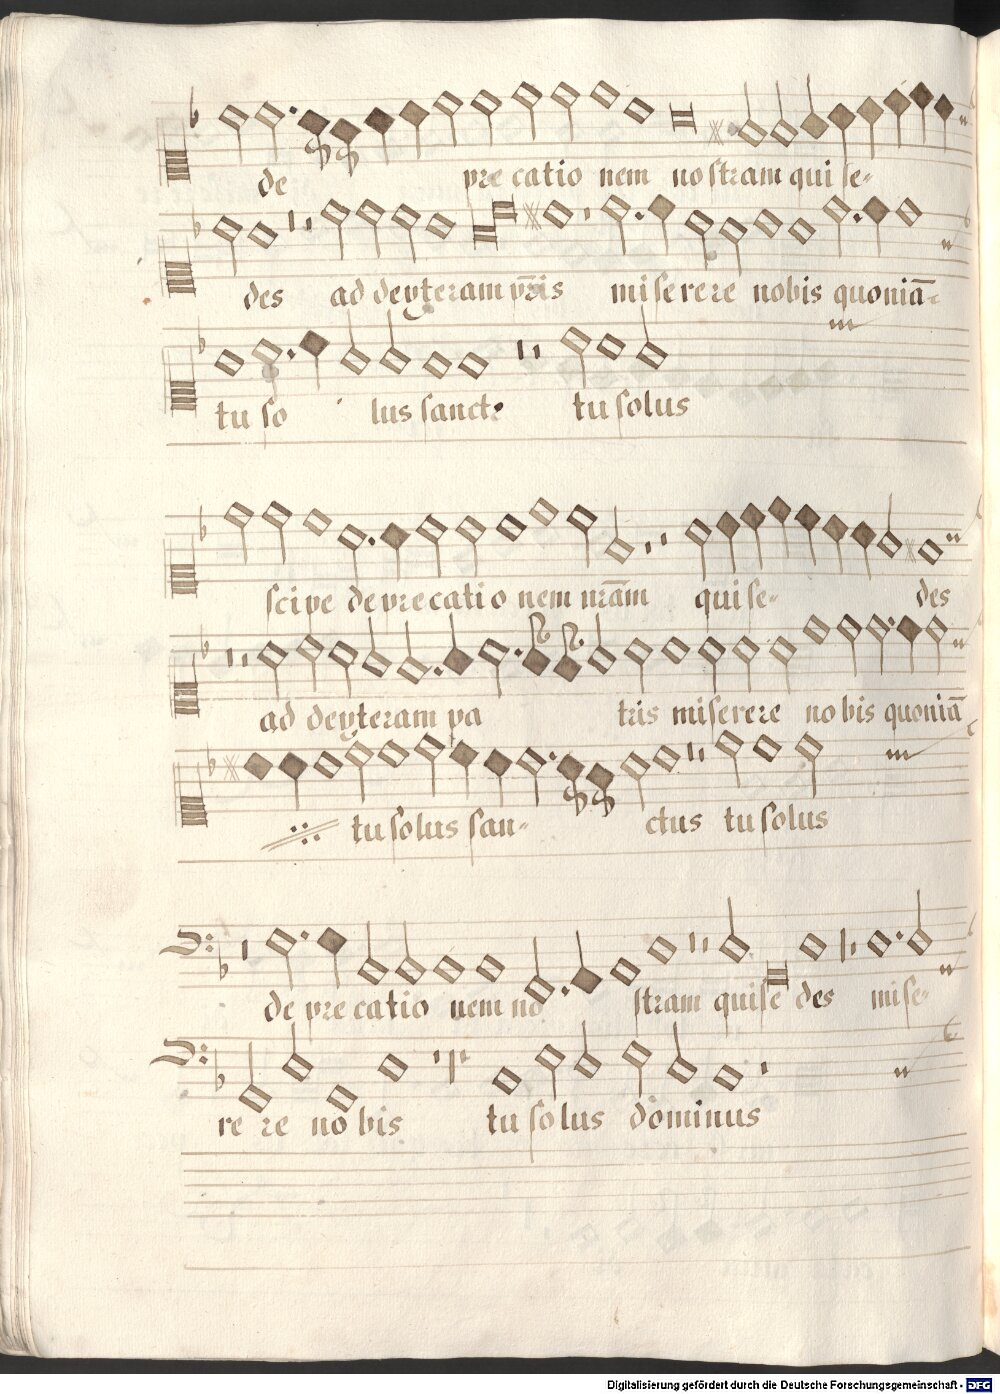 de pre catio nem nostram qui se-
des ad dexteram pr̄is miserere nobis quoniā-
tu so lus sancte tu solus
scipe deprecatio nem nr̄am qui se- des
ad dexteram pa tris miserere no bis quoniā
tu solus san- ctus tu solus
de pre catio nem no stram qui se des mise-
re re no bis tu so lus dominus
Digitalisierung gefördert durch die Deutsche Forschungsgemeinschaft - DFG